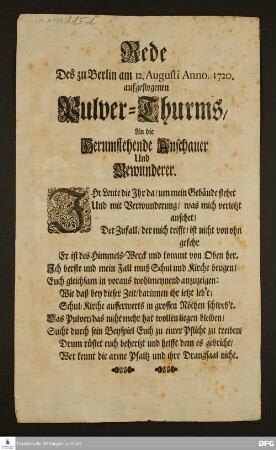 Rede
Des zu Berlin am 12. Augusti Anno. 1720.
aufgeflogenen
Pulver-Thurms/
An die
Herumstehende Anschauer
Und
Bewunderer.
IHr Leute die Ihr da/ um mein Gebäude stehet
Und mit Verwunderung/ was mich verletzt
ansehet/
Der Zufall/ der mich trifft/ ist nicht von ohn
gesehr
Er ist des Himmels-Werck und kommt von Oben her.
Ich berste und mein Fall muß Schul und Kirche beugen/
Euch gleichsam in voraus wohlmeynend anzuzeigen:
Wie daß bey dieser Zeit/ darinnen ihr jetzt leb't;
Schul/ Kirche ausserwerts in grossen Nöthen schweb't.
Das Pulver/ das nicht mehr hat wollen liegen bleiben/
Sucht durch sein Beyspiel Euch zu einer Pflicht zu treiben/
Drum rüstet euch behertzt und helfft dem es gebricht/
Wer kennt die arme Pfaltz und ihre Drangsaal nicht.